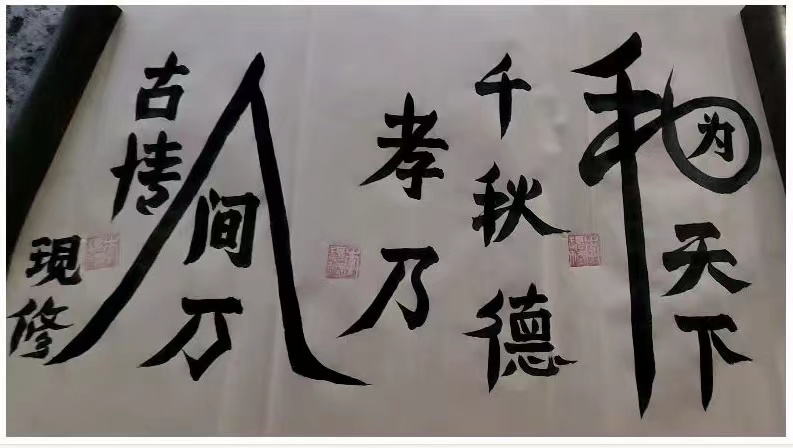 和
为天下
千秋德
孝乃
人
间万
古情
現修